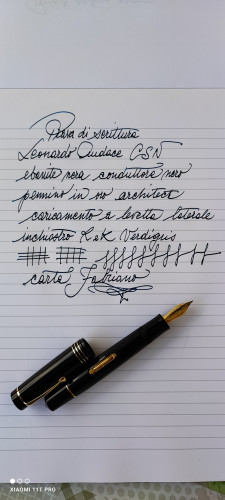 Prova di scrittura
Leonardo Audace CSN
ebanite nera conduttore nero
pennino in oro architect
caricamento a levetta laterale
inchiostro R&K Verdigris
carta Fabriano
XIAOMI 11T PRO